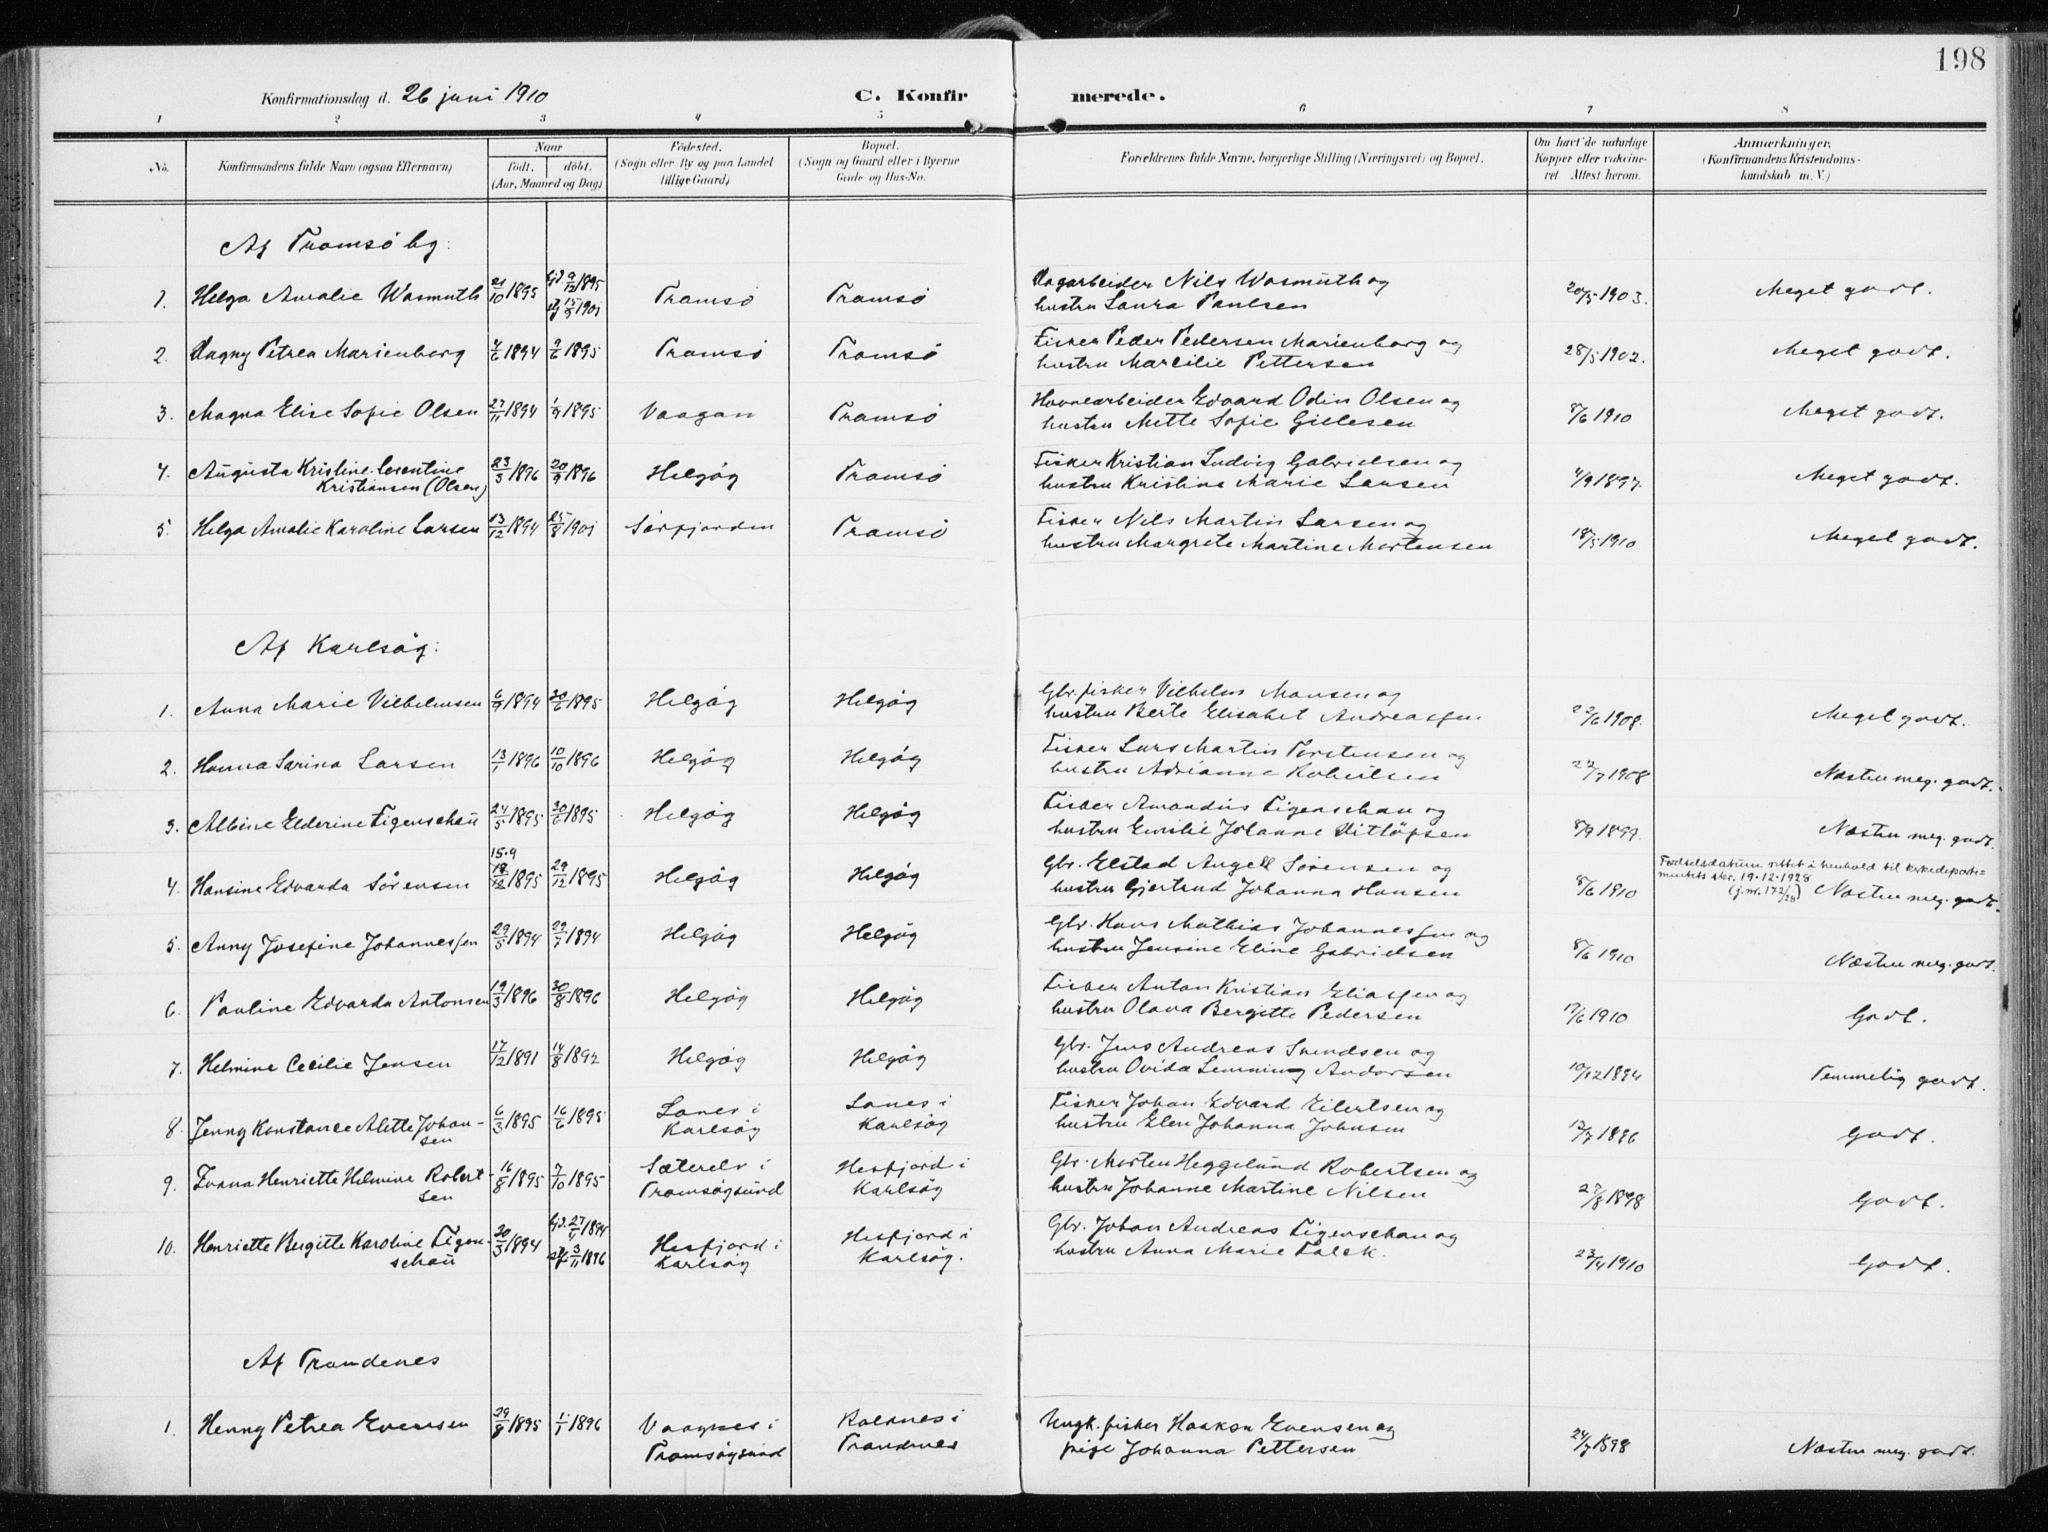 198
Konfirmationsdag d. 26 juni 1910 C. Konfirmerede.
1 2 3 4 5 6 7 8
No. Konfirmandens fulde Navn (ogsaa Efternavn) Naar födt. döbt. (Aar, Maaned og Dag) Födested. (Sogn eller By og paa Landet tillige Gaard) Bopæl. (Sogn og Gaard eller i Byerne Gade og Hus-No. Forældrenes fulde Navne, borgerlige Stilling (Næringsvei) og Bopæl. Om havt de naturlige Kopper eller vaccineret Attest herom. Anmærkninger. (Konfirmandens Kristendomskundskab m. V.)
Af Tromsö by:
1. Helga Amalie Wasmuth 21/10 1895 hjd. 9/12 1895 Tromsö Tromsö Dagarbeider Nils Wasmuth og 20/5 1903. Meget godt.
15/9 1901 hustru Laura Paulsen
2. Dagny Petrea Marienborg 4/6 1894 9/6 1895 Tromsö Tromsö Fisker Peder Pedersen Marienborg og 28/5 1902. Meget godt.
hustru Marcilie Pettersen
3. Magna Elise Sofie Olsen 27/11 1894 1/9 1895 Vaagan Tromsö Havnearbeider Edvard Odin Olsen og 8/6 1910 Meget godt.
hustru Mette Sofie Gillesen
4. Augusta Kristine Lorentine 23/3 1896 20/9 1896 Helgöy Tromsö Fisker Kristian Ludvig Gabrielsen og 4/9 1897. Meget godt.
Kristiansen (Olsen) hustru Kristine Marie Larsen
5. Helga Amalie Karoline Larsen 13/12 1894 25/8 1901 Sörfjorden Tromsö Fisker Nils Martin Larsen og 18/5 1910 Meget godt.
hustru Margrete Martine Mortensen
Af Karlsöy:
1. Anna Marie Vilhelmsen 6/9 1894 30/6 1895 Helgöy Helgöy Gbr. fisker Vilhelm Hansen og 22/6 1908. Meget godt.
hustru Berte Elisabet Andreassen
2. Hanna Sarina Larsen 13/1 1896 10/10 1896 Helgöy Helgöy Fisker Lars Martin Torstensen og 22/7 1908 Næsten meg. godt.
hustru Adrianne Robertsen
3. Albine Elderine Figenschau 24/5 1895 30/6 1895 Helgöy Helgöy Fisker Amandus Figenschau og 8/9 1899. Næsten meg. godt.
hustru Emilie Johanne Ditlöpsen
15.9 Födselsdatum rettet i henhold til kirkedeparte-
4. Hansine Edvarda Sörensen 18/12 1895 29/12 1895 Helgöy Helgöy Gbr. Elstad Angell Sörensen og 8/6 1910 mentets skr. 19.12.1928
hustru Gjertrud Johanna Hansen (j.nr. 172/28) Næsten meg. godt.
5. Anny Josefine Johannessen 29/5 1894 29/7 1894 Helgöy Helgöy Gbr. Hans Mathias Johannessen og 8/6 1910 Næsten meg. godt.
hustru Jensine Eline Gabrielsen
6. Pauline Edvarda Antonsen 19/3 1896 30/8 1896 Helgöy Helgöy Fisker Anton Kristian Eliassen og 17/6 1910 Godt.
hustru Olava Bergitte Pedersen
7. Helmine Cecilie Jensen 17/12 1891 14/8 1892 Helgöy Helgöy Gbr. Jens Andreas Svendsen og 10/12 1894 Temmelig godt.
hustru Ovida Lemming Andorsen
8. Jenny Konstance Alette Johan- 6/3 1895 16/6 1895 Lanes i Lanes i Fisker Johan Edvard Eilertsen og 12/7 1896 Godt.
sen Karlsöy Karlsöy hustru Elen Johanna Johnsen
9. Ivana Henriette Helmine Robert- 16/8 1895 7/10 1895 Sæterelv i Hesfjord i Gbr. Morten Heggelund Robertsen og 27/8 1898 Godt.
sen Tromsöysund Karlsöy hustru Johanne Martine Nilsen
10. Henriette Bergitte Karoline Figen- 20/3 1894 hjd. 27/5 1894 Hesfjord i Hesfjord i Gbr. Johan Andreas Figenschau og 23/4 1910 Godt.
schau 3/11 1896 Karlsöy Karlsöy. hustru Anna Marie Falck.
Af Trandenes
1. Henny Petrea Evensen 29/8 1895 1/1 1896 Vaagnes i Kolднes i Ungk. fisker Haakon Evensen og 24/7 1898 Næsten meg. godt.
Tromsöysund Trandenes pige Johanna Pettersen